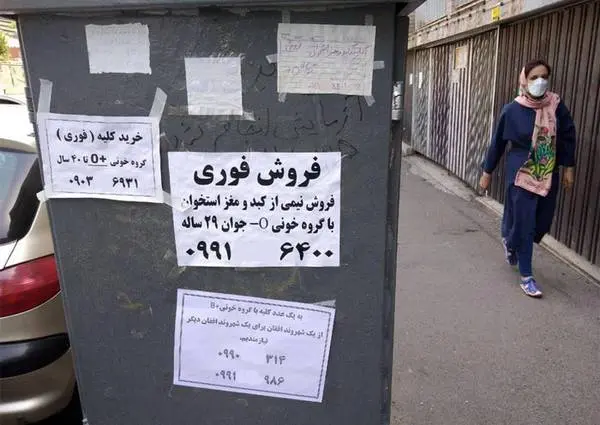 خرید کلیه ( فوری )
گروه خونی +O تا ۴۰ سال
۰۹۰۳ ۶۹۳۱
فروش فوری
فروش نیمی از کبد و مغز استخوان
با گروه خونی O- جوان ۲۹ ساله
۰۹۹۱ ۶۴۰۰
به یک عدد کلیه با گروه خونی B+
از یک شهروند افغان برای یک شهروند افغان دیگر
نیازمندیم.
۰۹۹۰ ۳۱۴
۰۹۹۱ ۹۸۶